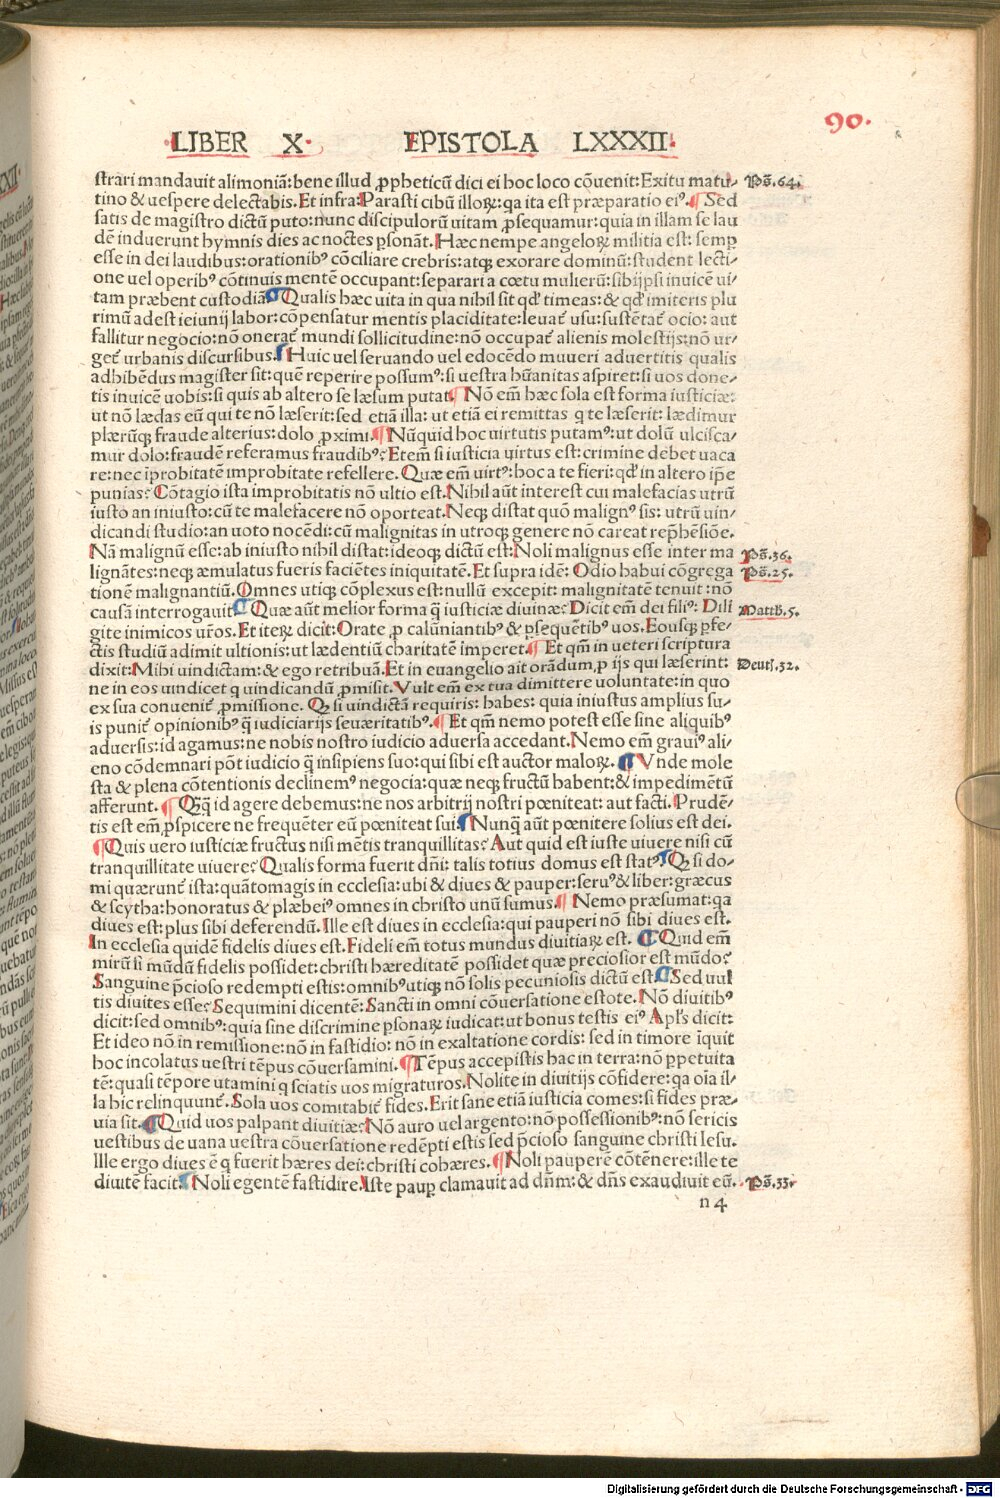 90.
LIBER X. EPISTOLA LXXXII.
strari mandauit alimoniã: bene illud ꝓpheticũ dici ei hoc loco cõuenit: Exitu matu/ Ps̃.64.
tino & uespere delectabis. Et infra: Parasti cibũ illoꝝ: qa ita est præparatio eiꝰ. ¶ Sed
satis de magistro dictũ puto: nunc discipulorũ uitam ꝓsequamur: quia in illam se lau
dẽ induerunt hymnis dies ac noctes ꝑsonãt. Hæc nempe angeloꝝ militia est: semꝑ
esse in dei laudibus: orationibꝰ cõciliare crebris: atqꝫ exorare dominũ: student lecti/
one uel operibꝰ cõtinuis mentẽ occupant: separari a cœtu mulierũ: sibijpsi inuicẽ ui/
tam præbent custodiã. ¶ Qualis hæc uita in qua nihil sit qd' timeas: & qd' imiteris plu
rimũ adest ieiunij labor: cõpensatur mentis placiditate: leuat̃ usu: sustẽtat̃ ocio: aut
fallitur negocio: nõ onerat̃ mundi sollicitudine: nõ occupat̃ alienis molestijs: nõ ur/
get̃ urbanis discursibus. ¶ Huic uel seruando uel edocẽdo muueri aduertitis qualis
adhibẽdus magister sit: quẽ reperire possumꝰ: si uestra hũanitas aspiret: si uos done/
tis inuicẽ uobis: si quis ab altero se læsum putat. ¶ Nõ em̃ hæc sola est forma iusticiæ:
ut nõ lædas eũ qui te nõ læserit: sed etiã illa: ut etiã ei remittas q te læserit: lædimur
plærũqꝫ fraude alterius: dolo ꝓximi. ¶ Nũquid hoc uirtutis putamꝰ: ut dolũ ulcisca/
mur dolo: fraudẽ referamus fraudibꝰ? Etem̃ si iusticia uirtus est: crimine debet uaca
re: nec iprobitatẽ improbitate refellere. Quæ em̃ uirtꝰ: hoc a te fieri: qd' in altero ip̃e
punias? Cõtagio ista improbitatis nõ ultio est. Nihil aũt interest cui malefacias utrũ
iusto an iniusto: cũ te malefacere nõ oporteat. Neqꝫ distat quõ malignꝰ sis: utrũ uin/
dicandi studio: an uoto nocẽdi: cũ malignitas in utroqꝫ genere nõ careat rep̃hẽsiõe.
Nã malignũ esse: ab iniusto nihil distat: ideoqꝫ dictũ est: Noli malignus esse inter ma Ps̃.36.
lignãtes: neqꝫ æmulatus fueris faciẽtes iniquitatẽ. Et supra idẽ: Odio habui cõgrega Ps̃.25.
tionẽ malignantiũ. Omnes utiqꝫ cõplexus est: nullũ excepit: malignitatẽ tenuit: nõ
causã interrogauit. ¶ Quæ aũt melior forma q̃ iusticiæ diuinæ? Dicit em̃ dei filiꝰ: Dili Matth̃.5.
gite inimicos ur̃os. Et iteꝝ dicit: Orate ꝓ calũniantibꝰ & ꝑsequẽtibꝰ uos. Eousqꝫ ꝑfe/
ctis studiũ adimit ultionis: ut lædentiũ charitatẽ imperet. ¶ Et qm̃ in ueteri scriptura
dixit: Mihi uindictam: & ego retribuã. Et in euangelio ait orãdum, ꝓ ijs qui læserint: Deut̃.32.
ne in eos uindicet q uindicandũ ꝓmisit. Vult em̃ ex tua dimittere voluntate: in quo
ex sua conuenit̃ ꝓmissione. Qꝫ si uindictã requiris: habes: quia iniustus amplius su/
is punit̃ opinionibꝰ q̃ iudiciarijs seuæritatibꝰ. ¶ Et qm̃ nemo potest esse sine aliquibꝰ
aduersis: id agamus: ne nobis nostro iudicio aduersa accedant. Nemo em̃ grauiꝰ ali/
eno cõdemnari põt iudicio q̃ insipiens suo: qui sibi est auctor maloꝝ. ¶ Vnde mole
sta & plena cõtentionis declinemꝰ negocia: quæ neqꝫ fructũ habent: & impedimẽtũ
afferunt. ¶ Qq̃ id agere debemus: ne nos arbitrij nostri pœniteat: aut facti. Prudẽ/
tis est em̃ ꝓspicere ne frequẽter eũ pœniteat sui. ¶ Nunq̃ aũt pœnitere solius est dei.
¶ Quis uero iusticiæ fructus nisi mẽtis tranquillitas? Aut quid est iuste uiuere nisi cũ
tranquillitate uiuere? Qualis forma fuerit dñi: talis totius domus est statꝰ. ¶ Qꝫ si do/
mi quærunt̃ ista: quãtomagis in ecclesia: ubi & diues & pauper: seruꝰ & liber: græcus
& scytha: honoratus & plæbeiꝰ omnes in christo unũ sumus. ¶ Nemo præsumat: qa
diues est: plus sibi deferendũ. Ille est diues in ecclesia: qui pauperi nõ sibi diues est.
In ecclesia quidẽ fidelis diues est. Fideli em̃ totus mundus diuitiaꝝ est. ¶ Quid em̃
mirũ si mũdũ fidelis possidet: christi hæreditatẽ possidet quæ preciosior est mũdo?
Sanguine p̃cioso redempti estis: omnibꝰ utiqꝫ nõ solis pecuniosis dictũ est. ¶ Sed uul
tis diuites esse? Sequimini dicentẽ: Sancti in omni cõuersatione estote. Nõ diuitibꝰ
dicit: sed omnibꝰ: quia sine discrimine ꝑsonaꝝ iudicat: ut bonus testis eiꝰ Apl's dicit:
Et ideo nõ in remissione: nõ in fastidio: nõ in exaltatione cordis: sed in timore iquit
hoc incolatus uestri tẽpus cõuersamini. ¶ Tẽpus accepistis hac in terra: nõ ꝑpetuita
tẽ: quasi tẽpore utamini q sciatis uos migraturos. Nolite in diuitijs cõfidere: qa oĩa il/
la hic relinquunt̃. Sola uos comitabit̃ fides. Erit sane etiã iusticia comes: si fides præ/
uia sit. ¶ Quid uos palpant diuitiæ? Nõ auro uel argento: nõ possessionibꝰ: nõ sericis
uestibus de uana uestra cõuersatione redẽpti estis sed p̃cioso sanguine christi Iesu.
Ille ergo diues ẽ q fuerit hæres dei: christi cohæres. ¶ Noli pauperẽ cõtẽnere: ille te
diuitẽ facit. ¶ Noli egentẽ fastidire. Iste pauꝑ clamauit ad dñm: & dñs exaudiuit eũ. Ps̃.33.
n 4
Digitalisierung gefördert durch die Deutsche Forschungsgemeinschaft - DFG